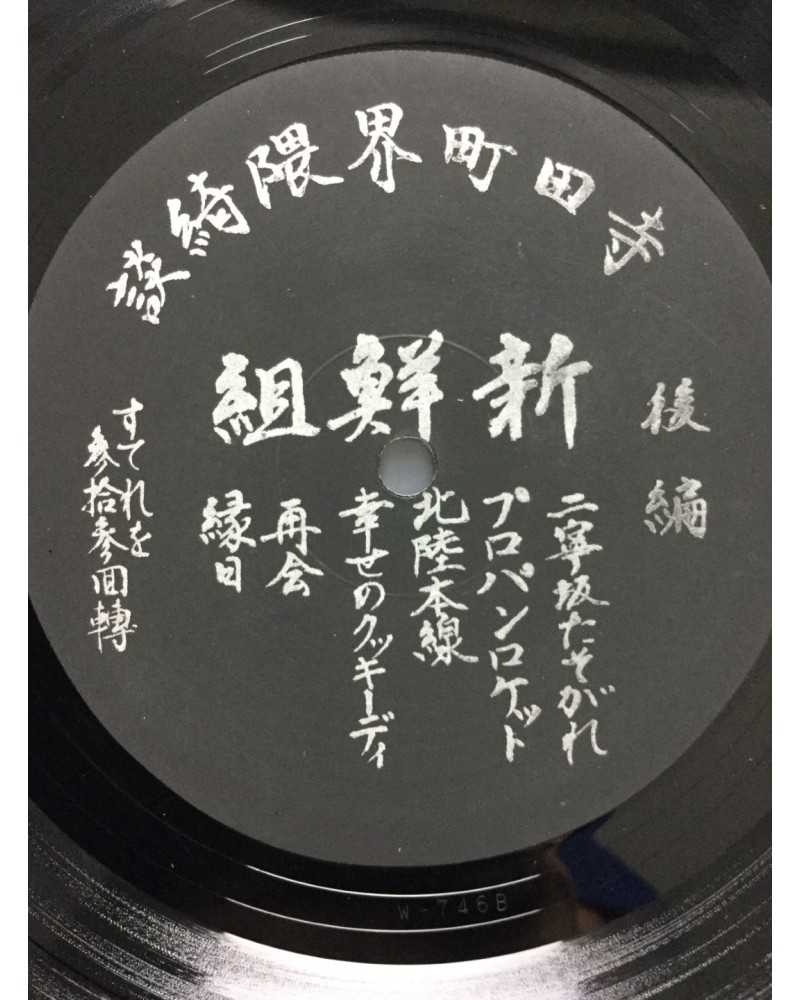 田町界隈綺
新鮮組
後編
二寧坂たそがれ
プロパンロケット
北陸本線
幸せのクッキーディ
再会
縁日
すてれを
参拾参回轉
W-746B